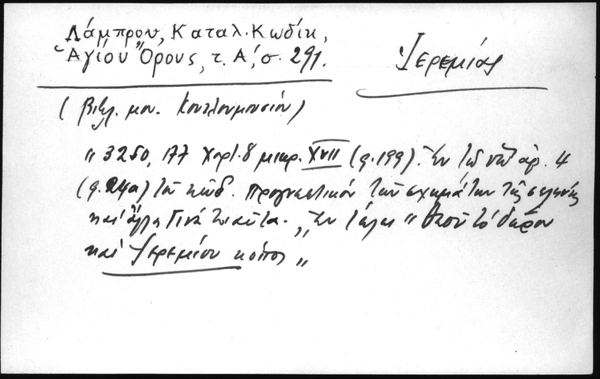 Λάμπρου, Καταλ. Κωδίκ,
Ἁγίου Ὄρους, τ. Α΄, σ. 291.
Ἱερεμίας
(Βιβλ. μον. Κουτλουμουσίου)
"3250, 177 χαρτ. 8 μικρ. XVII (φ. 199). Ἐν τῷ ὑπ' ἀρ. 4
(φ. 24α) τοῦ κώδ. προγνωστικόν τῶν σχημάτων τῆς σελήνης
καί ἄλλα τινά τοιαῦτα. "Ἐν τέλει "Θεοῦ τό δῶρον
καί Ἱερεμίου κόπος"